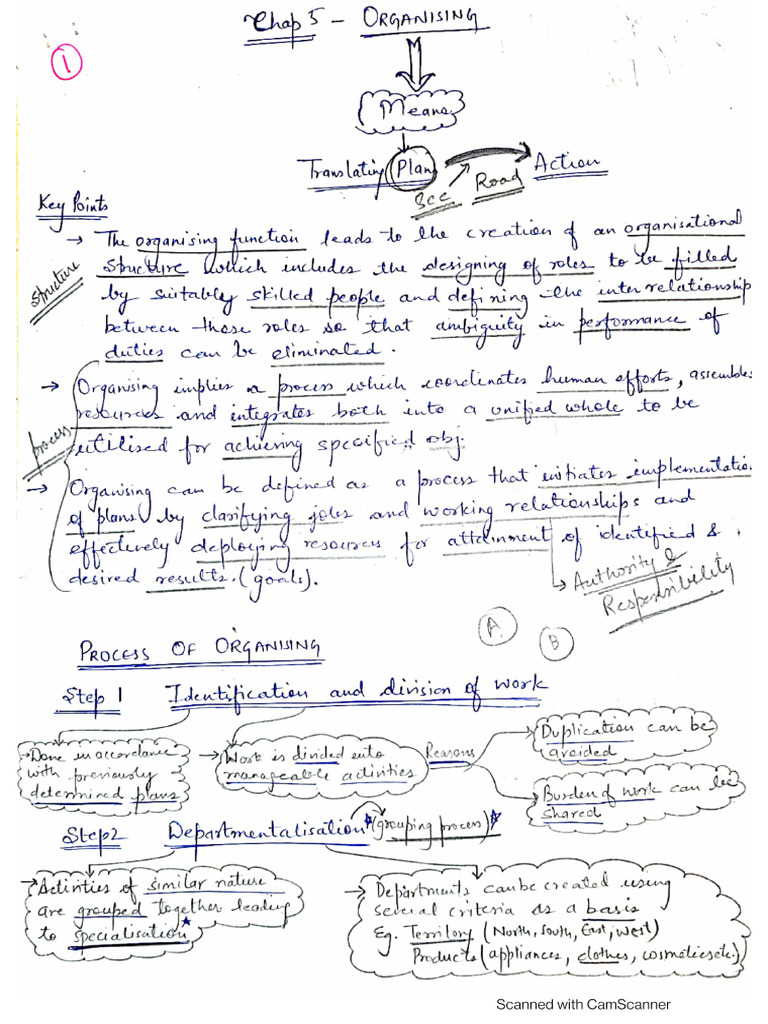 Chap 5 - ORGANISING
1
Means
Translating Plan Action
Scc Road
Key Points
→ The organising function leads to the creation of an organisational
structure which includes the designing of roles to be filled
by suitably skilled people and defining the inter relationship
between these roles so that ambiguity in performance of
duties can be eliminated.
Structure
→ Organising implies a process which coordinates human efforts, assembles
resources and integrates both into a unified whole to be
utilised for achieving specified obj.
Process
→ Organising can be defined as a process that initiates implementatio
of plans by clarifying jobs and working relationships and
effectively deploying resources for attainment of identified &
desired results. (goals).
→ Authority &
Responsibility
A B
PROCESS OF ORGANISING
Step 1 Identification and division of work
→ Done in accordance
with previously
determined plans
→ Work is divided into
manageable activities
Reasons
Duplication can be
avoided
Burden of work can be
shared
Step2 Departmentalisation (grouping process)
→ Activities of similar nature
are grouped together leading
to specialisation
→ Departments can be created using
several criteria as a basis
Eg. Territory (North, South, East, West)
Products (appliances, clothes, cosmetics etc.)
Scanned with CamScanner